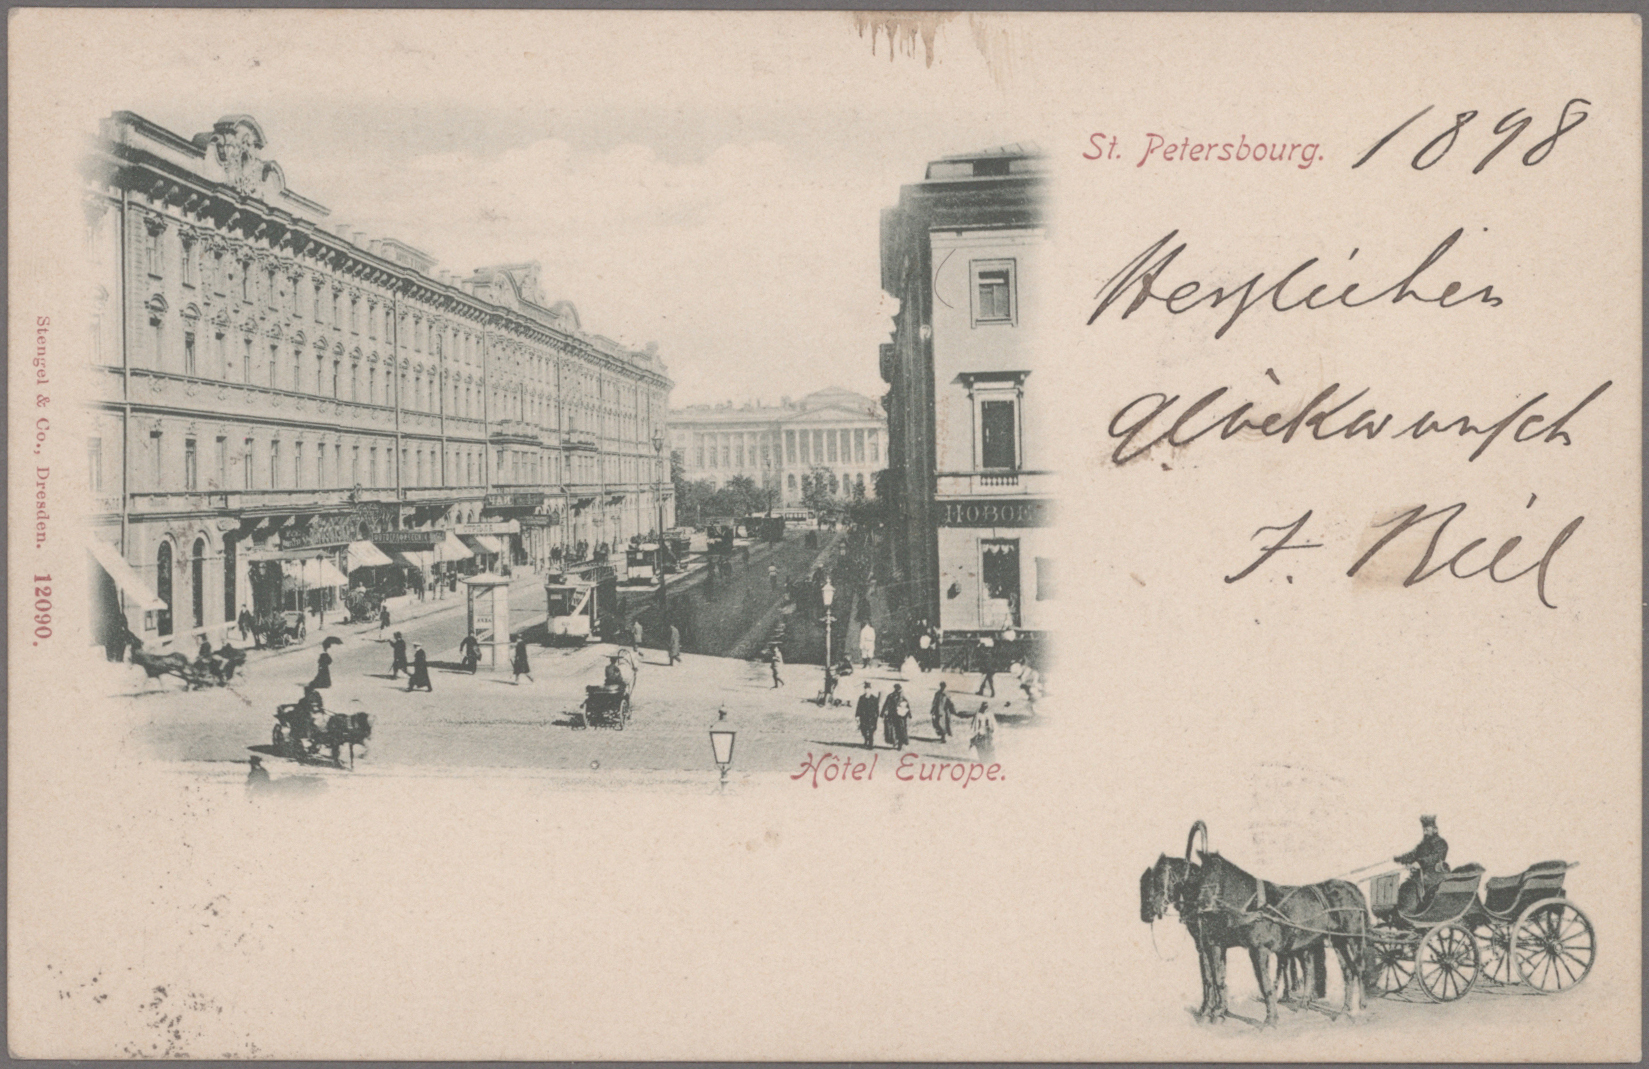 St. Petersbourg. 1898
Herzlichen
Glückwunsch
J. Biél
Hôtel Europe.
Stengel & Co., Dresden. 12090.
ЧАЙ
НОВОЕ